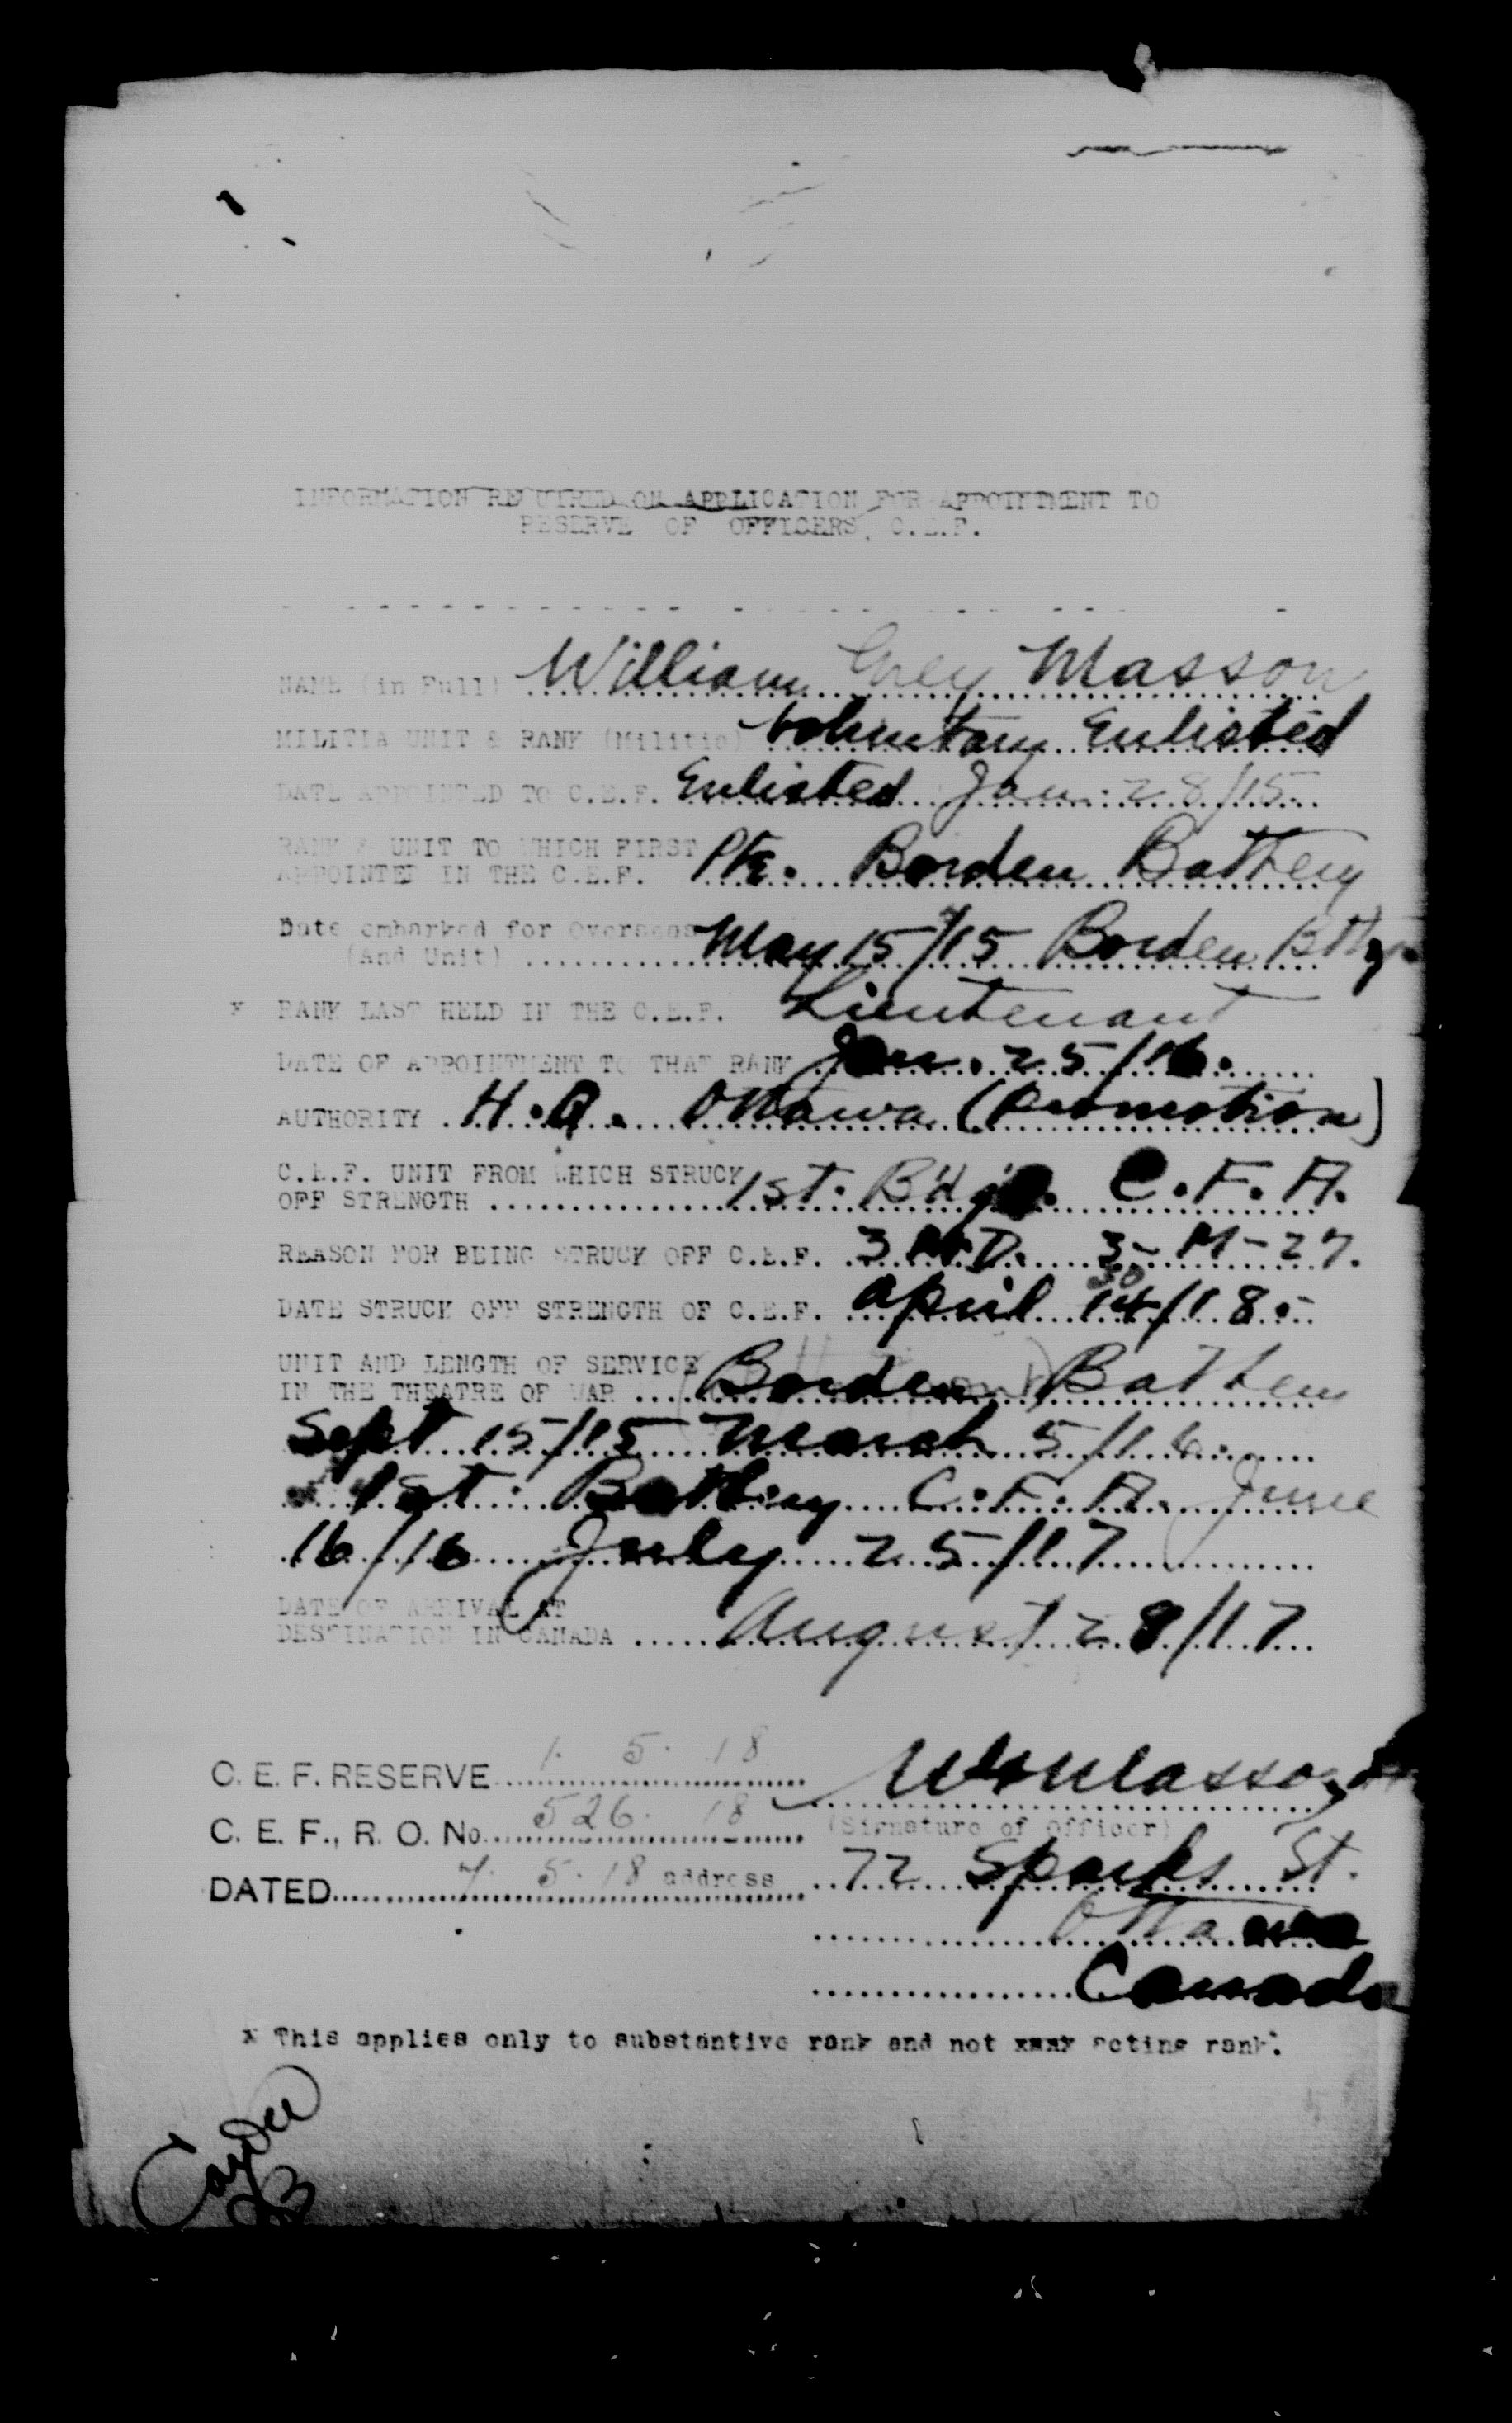 INFORMATION REQUIRED ON APPLICATION FOR APPOINTMENT TO
RESERVE OF OFFICERS, C.E.F.
NAME (in Full) William Grey Masson
MILITIA UNIT & RANK (Militia) Voluntary Enlisted
DATE APPOINTED TO C.E.F. Enlisted Jan. 28/15
RANK & UNIT TO WHICH FIRST
APPOINTED IN THE C.E.F. Pte. Borden Battery
Date embarked for Overseas
(And Unit) May 15/15 Borden Bttry.
x RANK LAST HELD IN THE C.E.F. Lieutenant
DATE OF APPOINTMENT TO THAT RANK Jan. 25/16.
AUTHORITY H.Q. Ottawa (Promotion)
C.E.F. UNIT FROM WHICH STRUCK
OFF STRENGTH 1st. Bdge. C.F.A.
REASON FOR BEING STRUCK OFF C.E.F. 3 M.D. 3-M-27.
DATE STRUCK OFF STRENGTH OF C.E.F. April 14/18 30
UNIT AND LENGTH OF SERVICE
IN THE THEATRE OF WAR Borden Battery
Sept 15/15 March 5/16.
1st. Battery C.F.A. June
16/16 July 25/17
DATE OF ARRIVAL AT
DESTINATION IN CANADA August 28/17
C. E. F. RESERVE 1. 5. 18 WGMasson
C. E. F., R. O. No. 526. 18 (Signature of Officer)
DATED 7. 5. 18 address 72 Sparks St.
Ottawa
Canada
x This applies only to substantive rank and not xxxx acting rank.